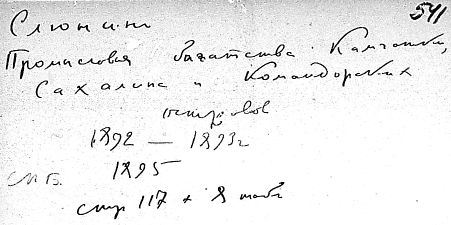 541
Слюнин
Промысловыя богатства Камчатки,
Сахалина и Командорских
островов
1892 — 1893г
СПБ. 1895
стр 117 + 8 табл